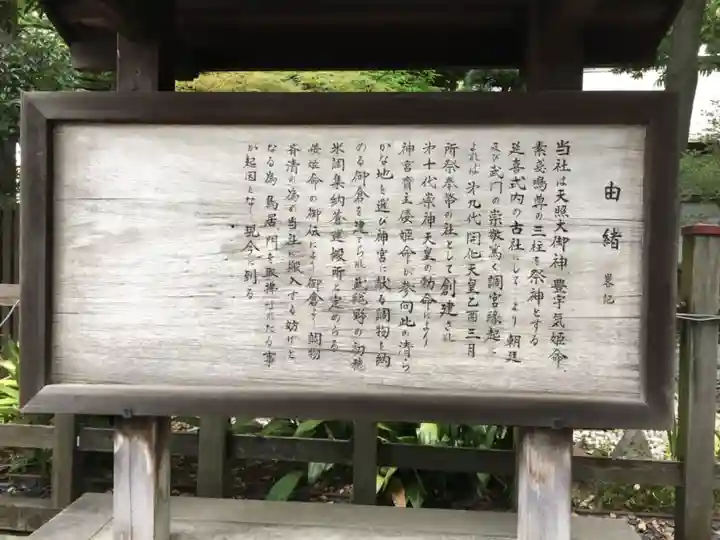 由緒 畧記
当社は天照大御神、豊宇気姫命、
素戔嗚尊の三柱を祭神とする
延喜式内の古社にして、より朝廷
及び武門の崇敬篤く調宮縁起に
よれば第九代開化天皇乙酉三月
所祭奉幣の社として創建され
第十代崇神天皇の勅命により
神宮斎主倭姫命が参向此の清ら
かな地を選び神宮に献る調物を納
める御倉を建てられ武総野の初穂
米調集納蒼運搬所と定めらる
倭姫命の御伝により御倉より調物
斉清の為当社に搬入する妨げと
なる為鳥居、門を取拂はれたる事
が起因となし現今に到る